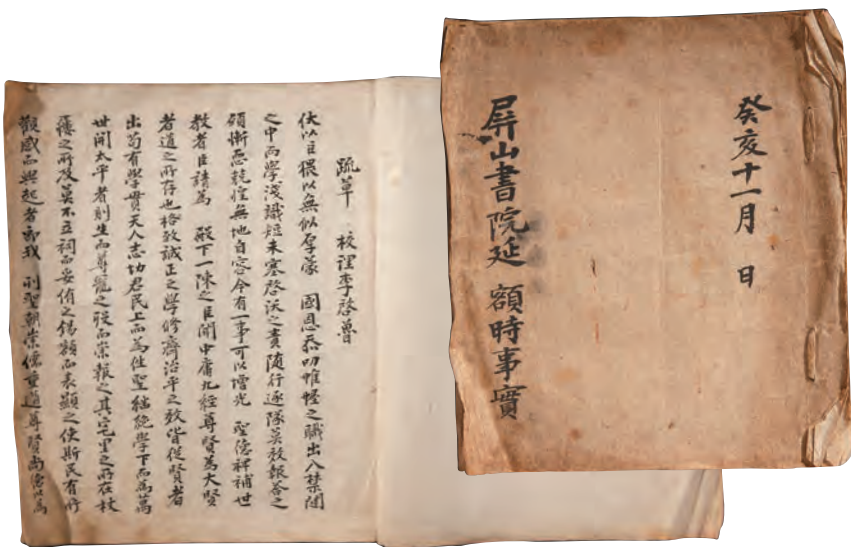 癸亥十一月 日
屛山書院延 額時事實
疏草 校理李啓魯
伏以臣猥以無似厚蒙 國恩忝叨帷幄之職出入禁闥
之中而學淺識短未塞啓沃之責隨行逐隊莫效報答之
願慚恧兢惶無地自容今有一事可以增光 聖德裨補世
敎者臣請爲 殿下一陳之臣聞中庸九經尊賢爲大賢
者道之所存也格致誠正之學修齊治平之效皆從賢者
出苟有學貫天人志切君民上而爲往聖継絶學下而爲萬
世開太平者則生而尊寵之歿而崇報之其宅里之所在杖
屨之所及莫不立祠而妥侑之錫額而表顯之使斯民有所
觀感而興起者卽我 列聖朝崇儒重道尊賢尙德以爲